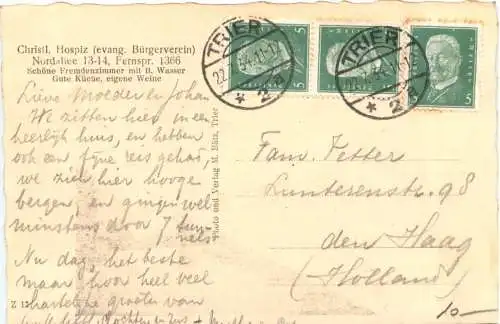 Christl. Hospiz (evang. Bürgerverein)
Nordallee 13-14, Fernspr. 1366
Schöne Fremdenzimmer mit fl. Wasser
Gute Küche, eigene Weine
Lieve Moeder en Johan
We zitten hier in een
heerlijk huis, en hebben
ook een fijne reis gehad,
we zien hier hooge
bergen, en gingen wel
minstens door 7 tunnels
Nu dag, het beste
maar hoor heel veel
hartelijke groeten van
Z 12
Photo und Verlag M. Bätz, Trier
TRIER
2a
TRIER
2a
5
5
5
Fam. Tetter
Lunterenstr. 98
den Haag
(Holland)
10-